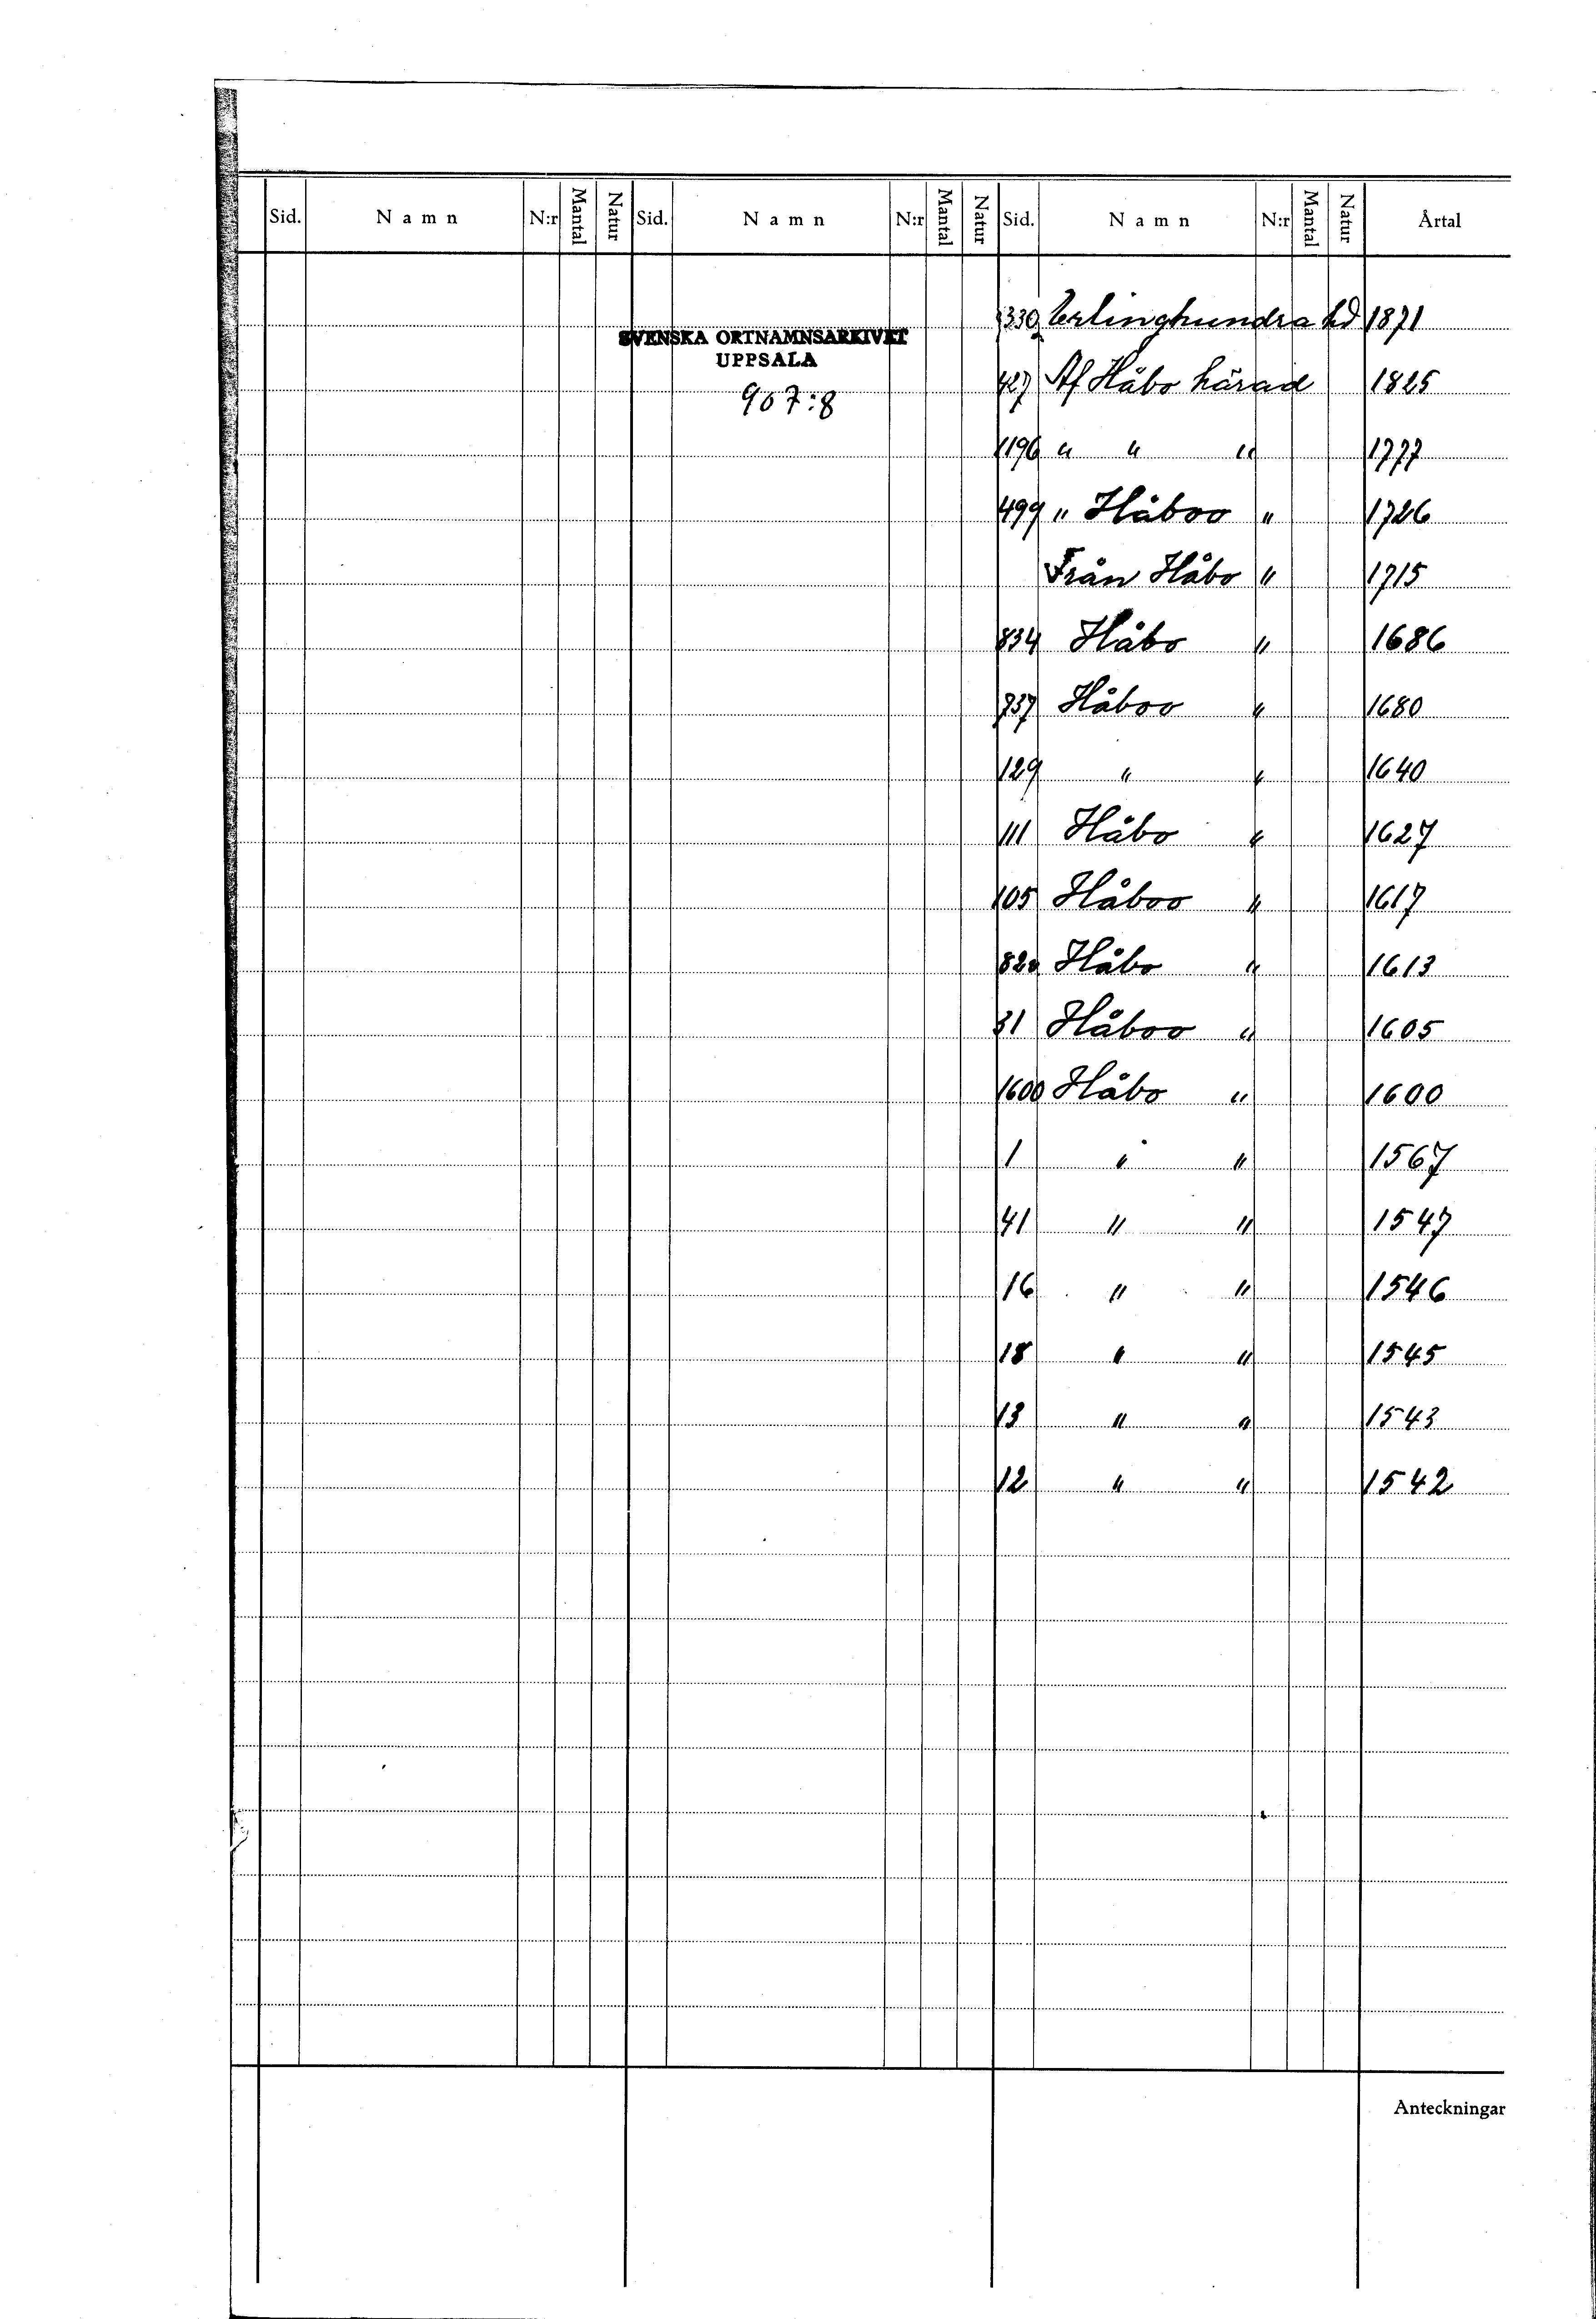 Sid. Namn N:r Mantal Natur Sid. Namn N:r Mantal Natur Sid. Namn N:r Mantal Natur Årtal
SVENSKA ORTNAMNSARKIVET
UPPSALA
907:8
330 Erlinghundra hd 1871
427 Af Håbo härad 1825
1196 " " " 1777
499 " Håboo " 1726
Från Håbo " 1715
834 Håbo " 1686
737 Håboo " 1680
129 " " 1640
111 Håbo " 1627
105 Håboo " 1617
820 Håbo " 1613
31 Håboo " 1605
1600 Håbo " 1600
1 " " 1567
41 " " 1547
16 " " 1546
18 " " 1545
13 " " 1543
12 " " 1542
Anteckningar